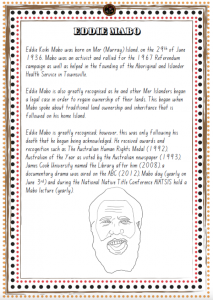 EDDIE MABO
Eddie Koiki Mabo was born on Mer (Murray) Island, on the 29th of June
1936. Mabo was an activist and rallied for the 1967 Referendum
campaign as well as helped in the founding of the Aboriginal and Islander
Health Service in Townsville.
Eddie Mabo is also greatly recognised as he and other Mer Islanders began
a legal case in order to regain ownership of their lands. This began when
Mabo spoke about traditional land ownership and inheritance that is
followed on his home Island.
Eddie Mabo is greatly recognised, however, this was only following his
death that he began being acknowledged. He received awards and
recognition such as The Australian Human Rights Medal (1992)
Australian of the Year as voted by the Australian newspaper (1993).
James Cook University named the Library after him (2008), a
documentary drama was aired on the ABC (2012), Mabo day (yearly on
June 3rd) and during the National Native Title Conference AIATSIS hold a
Mabo lecture (yearly).